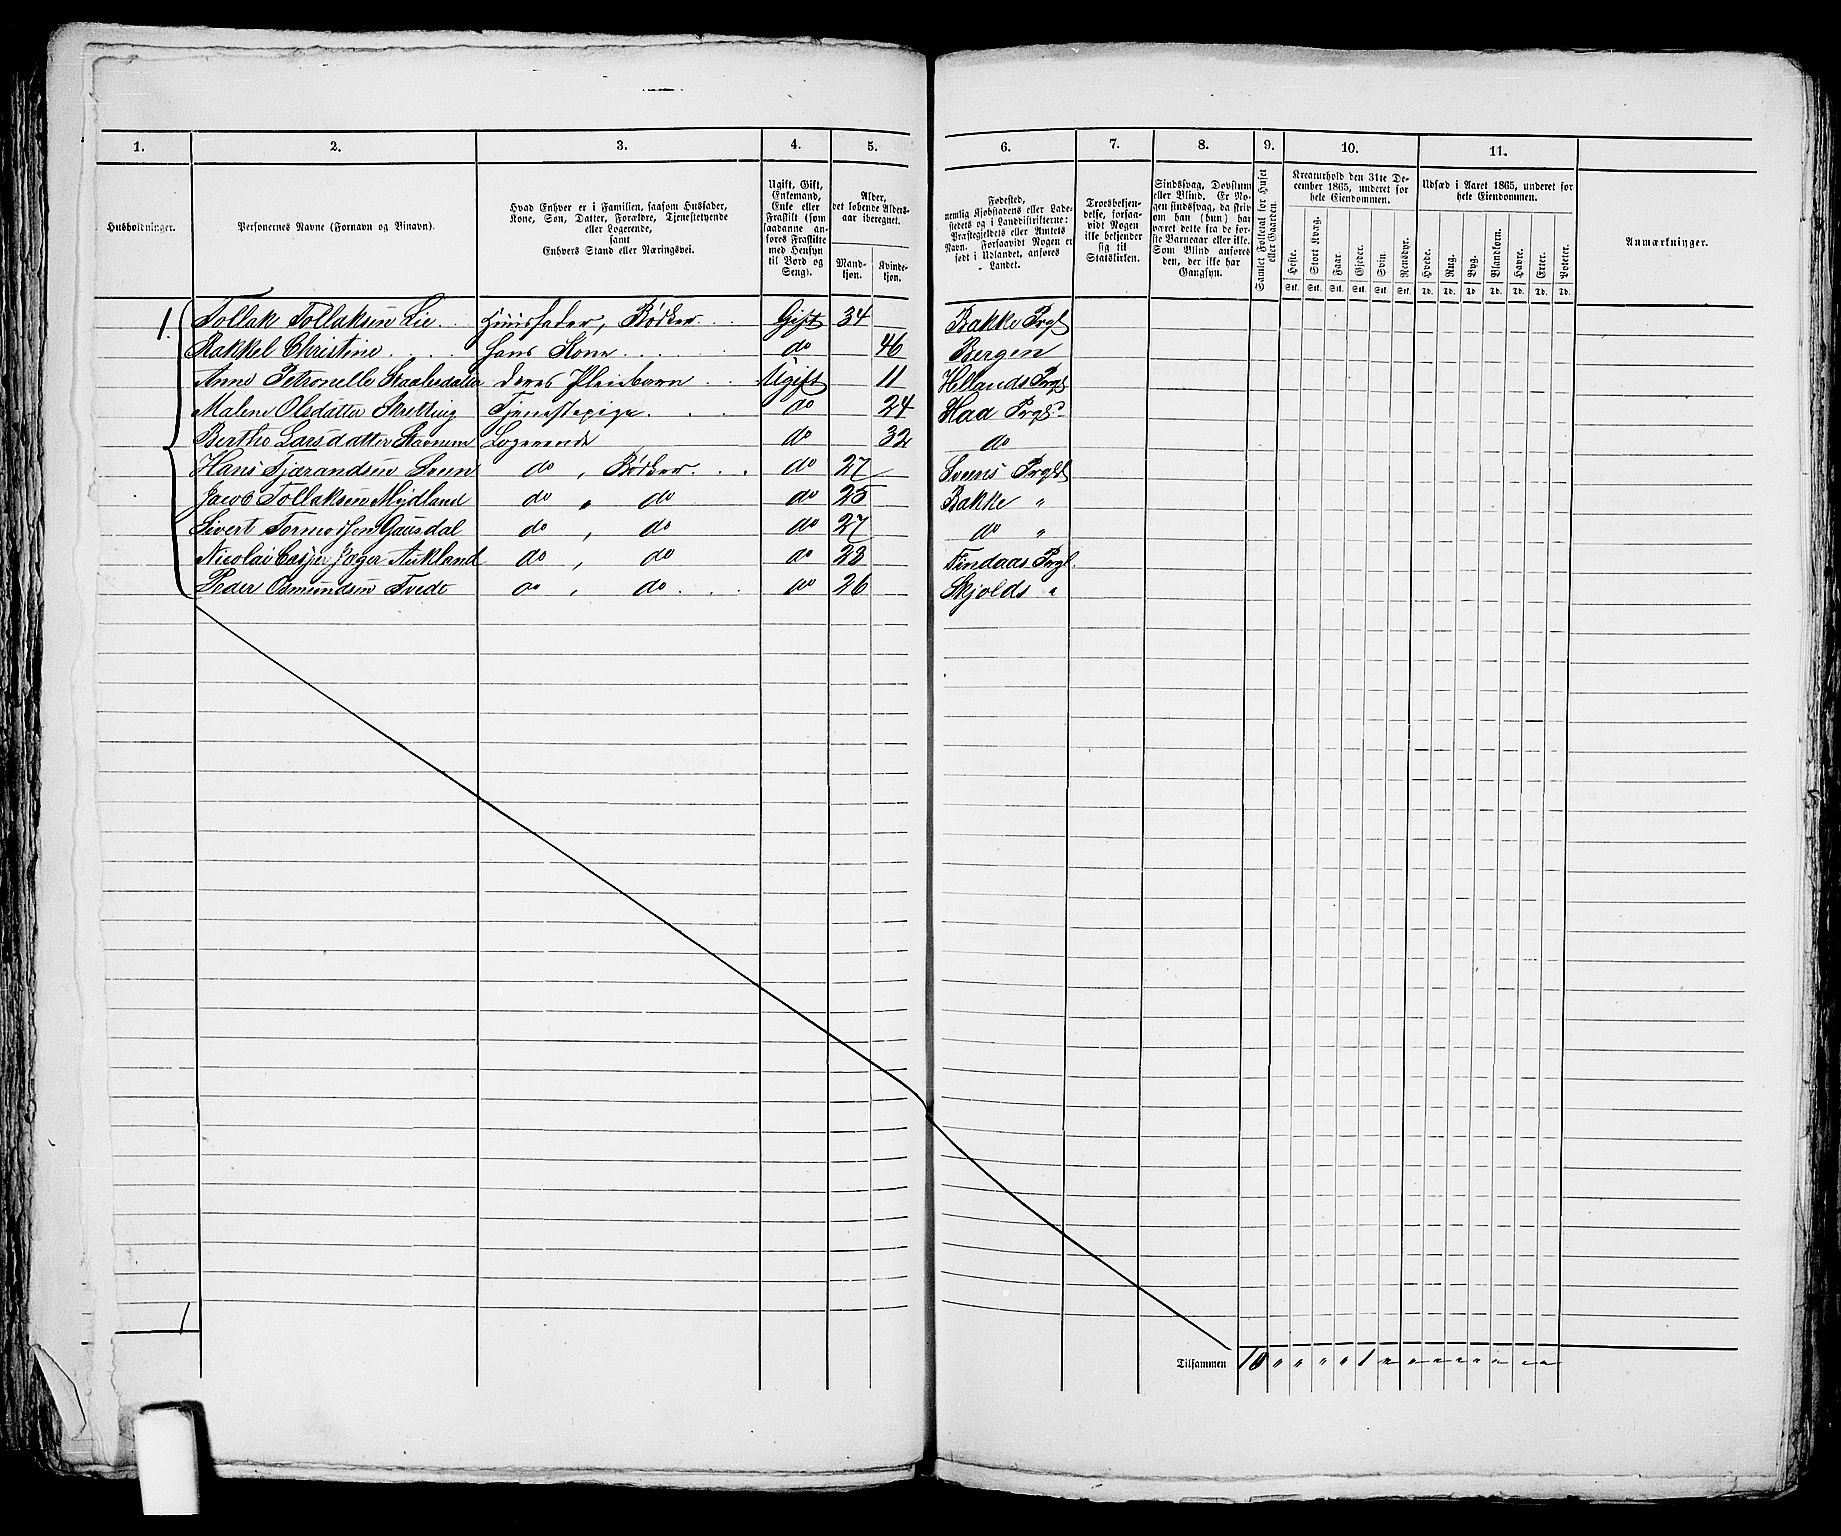 1. 2. 3. 4. 5. 6. 7. 8. 9. 10. 11.
Husholdninger.
Personernes Navne (Fornavn og Binavn).
Hvad Enhver er i Familien, saasom Husfader,
Kone, Søn, Datter, Forældre, Tjenestetyende
eller Logerende,
samt
Enhvers Stand eller Næringsvei.
Ugift, Gift,
Enkemand,
Enke eller
Fraskilt (som
saadanne an-
føres Fraskilte
med Hensyn
til Bord og
Seng).
Alder,
det løbende Alders-
aar iberegnet.
Mand-
kjøn.
Kvinde-
kjøn.
Fødested,
nemlig Kjøbstadens eller Lade-
stedets og i Landdistrikterne:
Præstegjeldets eller Amtets
Navn. Forsaavidt Nogen er
født i Udlandet, anføres
Landet.
Troesbekjen-
delse, forsaa-
vidt Nogen
ikke bekjender
sig til
Statskirken.
Sindssvag, Døvstum
eller Blind. Er No-
gen sindssvag, da skriv
om han (hun) har
været dette fra de før-
ste Barneaar eller ikke.
Som Blind anføres
den, der ikke har
Gangsyn.
Samlet Folketal for Huset
eller Gaarden.
Kreaturhold den 31te De-
cember 1865, underet for
hele Eiendommen.
Heste. Stort Kvæg. Faar. Gjeder. Svin. Rensdyr.
Stk. Stk. Stk. Stk. Stk. Stk.
Udsæd i Aaret 1865, underet for
hele Eiendommen.
Hvede. Rug. Byg. Blandkorn. Havre. Erter. Poteter.
Td. Td. Td. Td. Td. Td. Td.
Anmærkninger.
1. Tollak Tollaksen Lie Huusfader, Bødker Gift 34 Bakke Prgl
Rakkel Christine hans Kone do 46 Bergen
Anne Petronelle Staalesdatter deres Pleiebarn Ugift 11 Hellands Prgl
Malene Olsdatter Skretting Tjenestepige do 24 Haa Prgl
Berthe Larsdatter Stavnem Logerende do 32 do
Hans Tjærandsen Sveen do , Bødker do 27 Sveens Prgld
Jacob Tollaksen Mydland do " do do 25 Bakke "
Sivert Tormodsen Gausdal do , do do 27 do "
Nicolai Casper Jæger Aukland do , do do 23 Findaas Prgl
Peder Osmundsen Tvedt do , do do 26 Skjolds "
1
Tilsammen 10 " " " " 1 " " " " " " " "